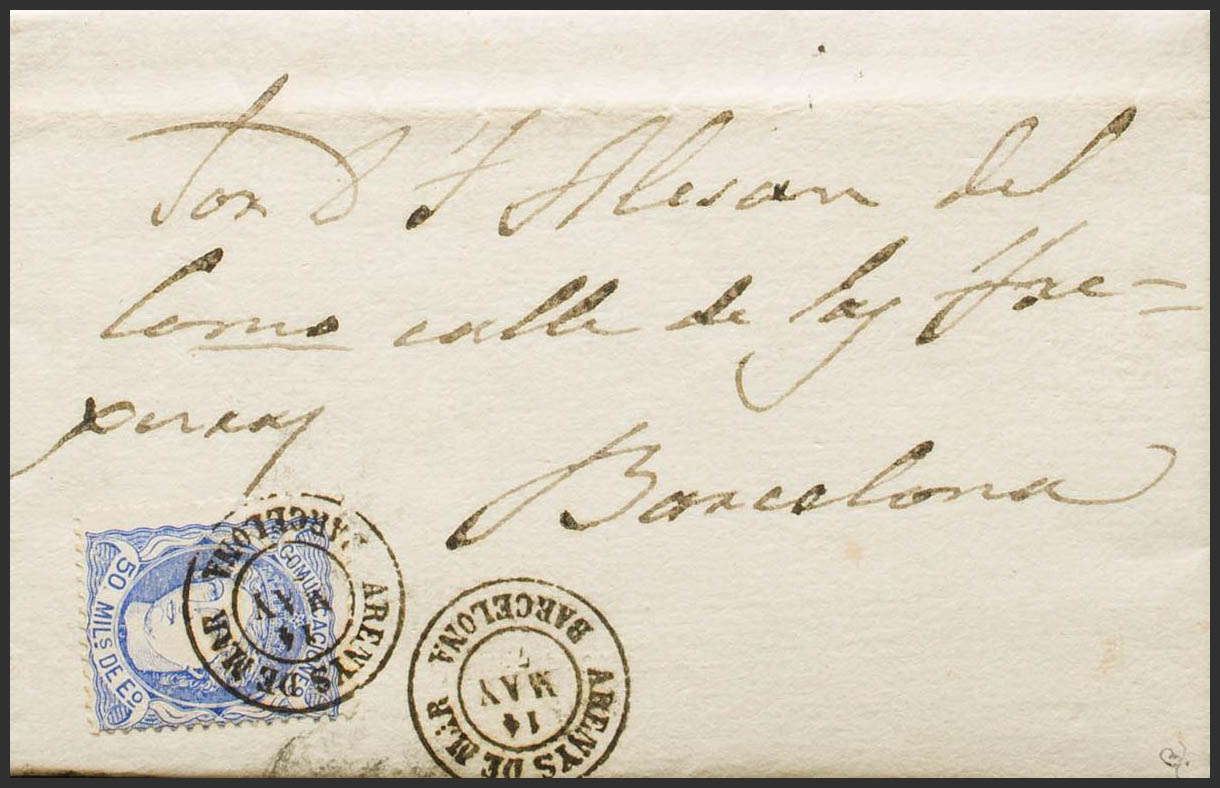 Sor D J Alesan del
Comᵒ calle de las Tre-
Barcelona
COMUNICACIONES
50 MILS. DE Eº
ARENYS DE MAR
BARCELONA
14
MAY
ARENYS DE MAR
BARCELONA
14
MAY